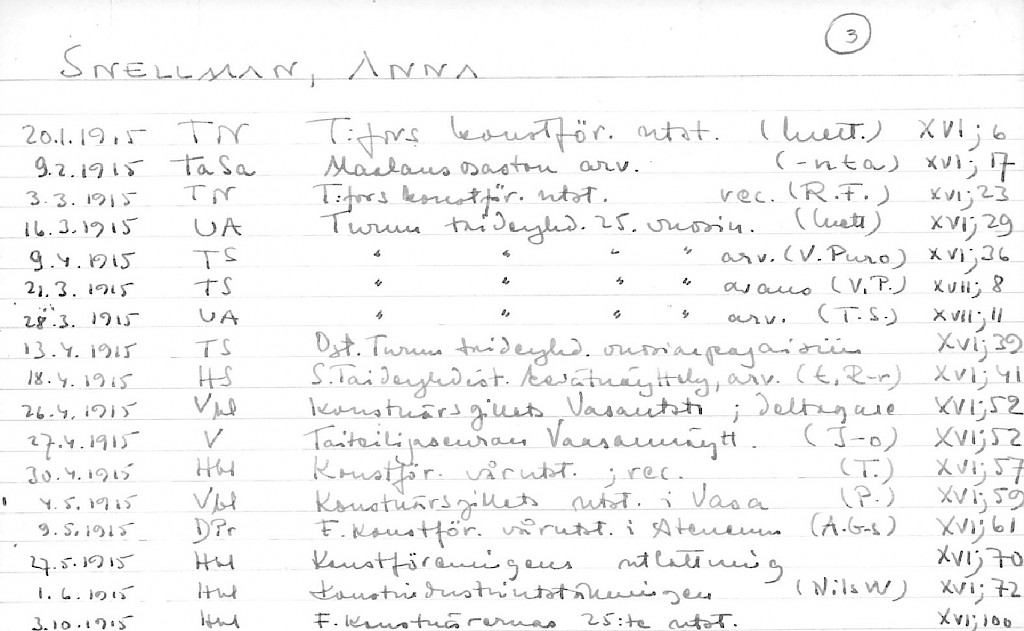 3
SNELLMAN, ANNA
20.1.1915 TN T:fors konstför. utst. (mett.) XVI; 6
9.2.1915 TaSa Maalausosaston arv. (-nta) XVI; 17
3.3.1915 TN T:fors konstför. utst. rec. (R.F.) XVI; 23
16.3.1915 UA Turun taideyhd. 25. vuosin. XVI; 29
9.4.1915 TS " " " " arv. (V. Puro) XVI; 36
21.3.1915 TS " " " " avaus (V.P.) XVII; 8
28.3.1915 UA " " " " arv. (T.S.) XVII; 11
13.4.1915 TS Ost. Turun taideyhd. vuosiarpajaisiin XVI; 39
18.4.1915 HS S. Taideyhdist. kevätnäyttely, arv. (E. R-r) XVI; 41
26.4.1915 Vbl Konstnärsgillets Vasautst. ; deltagare XVI; 52
27.4.1915 V Taiteilijaseuran Vaasannäytt. (J-o) XVI; 52
30.4.1915 Hbl Konstför. vårutst. ; rec. (T.) XVI; 57
4.5.1915 Vbl Konstnärsgillets utst. i Vasa (P.) XVI; 59
9.5.1915 DPr F. Konstför. vårutst. i Ateneum (A.G-s) XVI; 61
27.5.1915 Hbl Konstföreningens utlottning XVI; 70
1.6.1915 Hbl Konstindustriutställningen (Nils W) XVI; 72
3.10.1915 Hbl F. Konstnärernas 25:te utst. XVI; 100